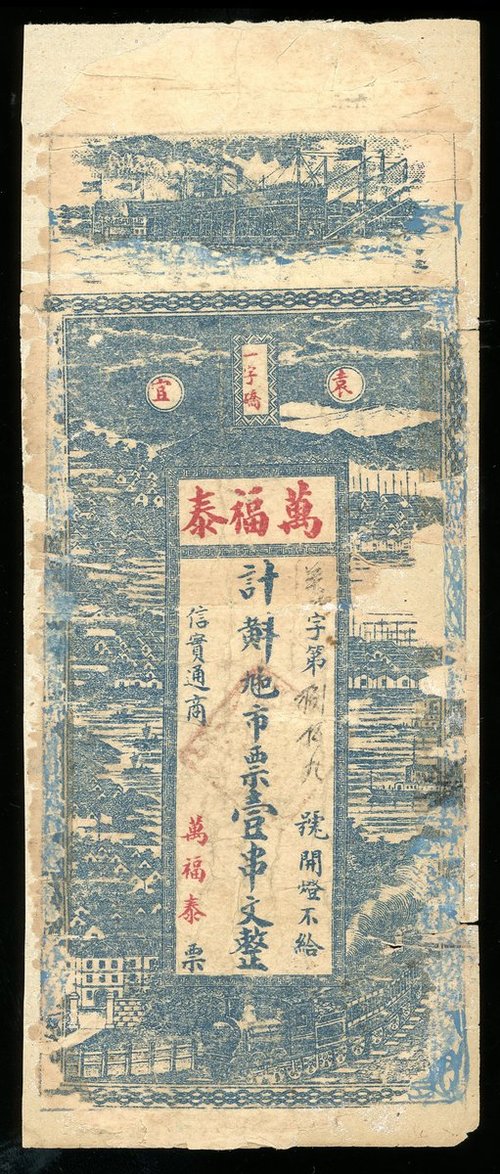 袁宜
一字
萬福泰
字第捌拾九號開燈不給
計 地市票壹串文整
信實通商
萬福泰票